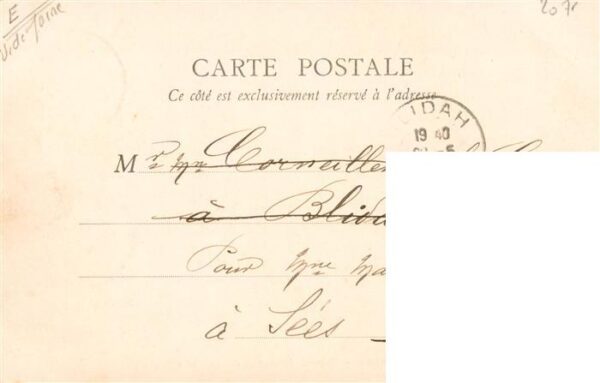 E
20 Fr
CARTE POSTALE
Ce côté est exclusivement réservé à l'adresse
LIDAH
19 40
M r Mme Corneille
à Blid
Pour Mme Ma
à Sées